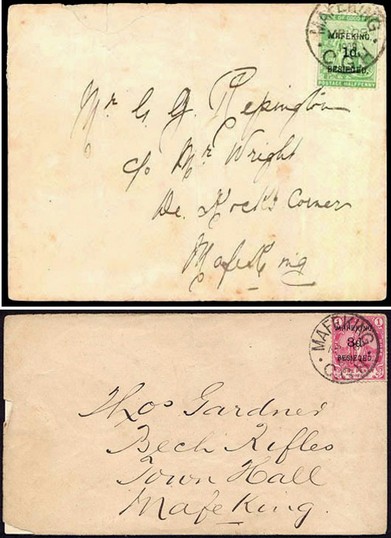 MAFEKING
C.G.H.
OF GOOD
MAFEKING,
1d.
BESIEGED.
POSTAGE HALFPENNY
Mr G. G. Repington
c/o Mr Wright
De Kock's Corner
Mafeking
MAFEKING
C.G.H.
MAFEKING,
3d.
BESIEGED.
Thos Gardner
Bech Rifles
Town Hall
Mafeking.